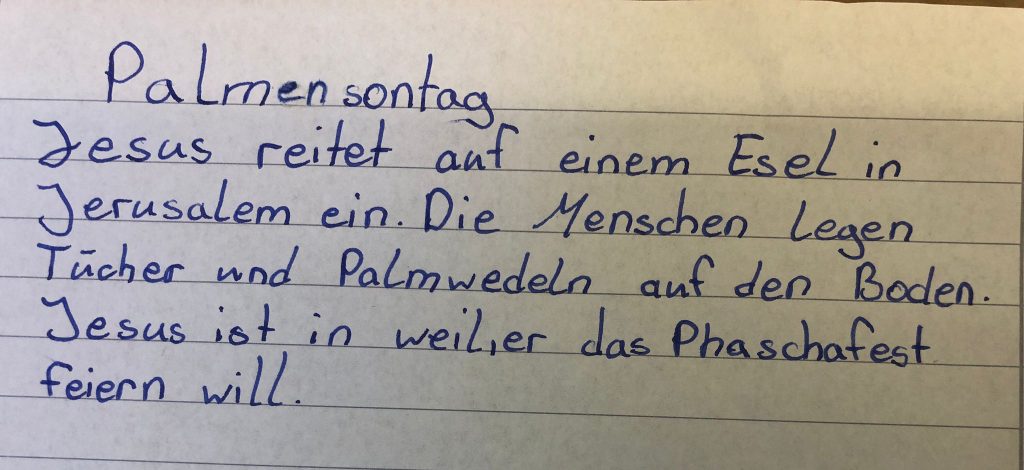 Palmensontag
Jesus reitet auf einem Esel in
Jerusalem ein. Die Menschen legen
Tücher und Palmwedeln auf den Boden.
Jesus ist in weil, er das Phaschafest
feiern will.